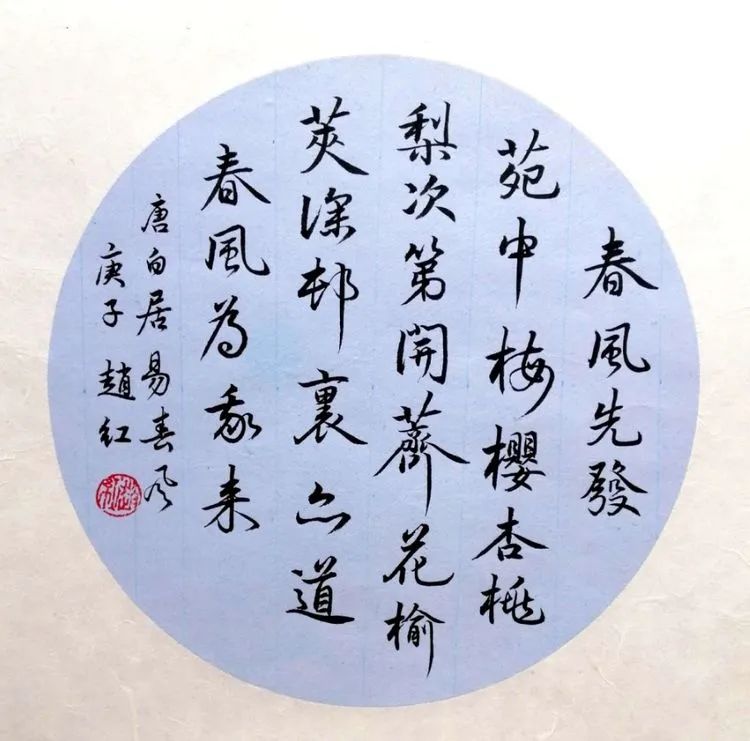 春風先發
苑中梅櫻杏桃
梨次第開薺花榆
莢深邨裏亦道
春風為我来
唐白居易春风
庚子 趙红